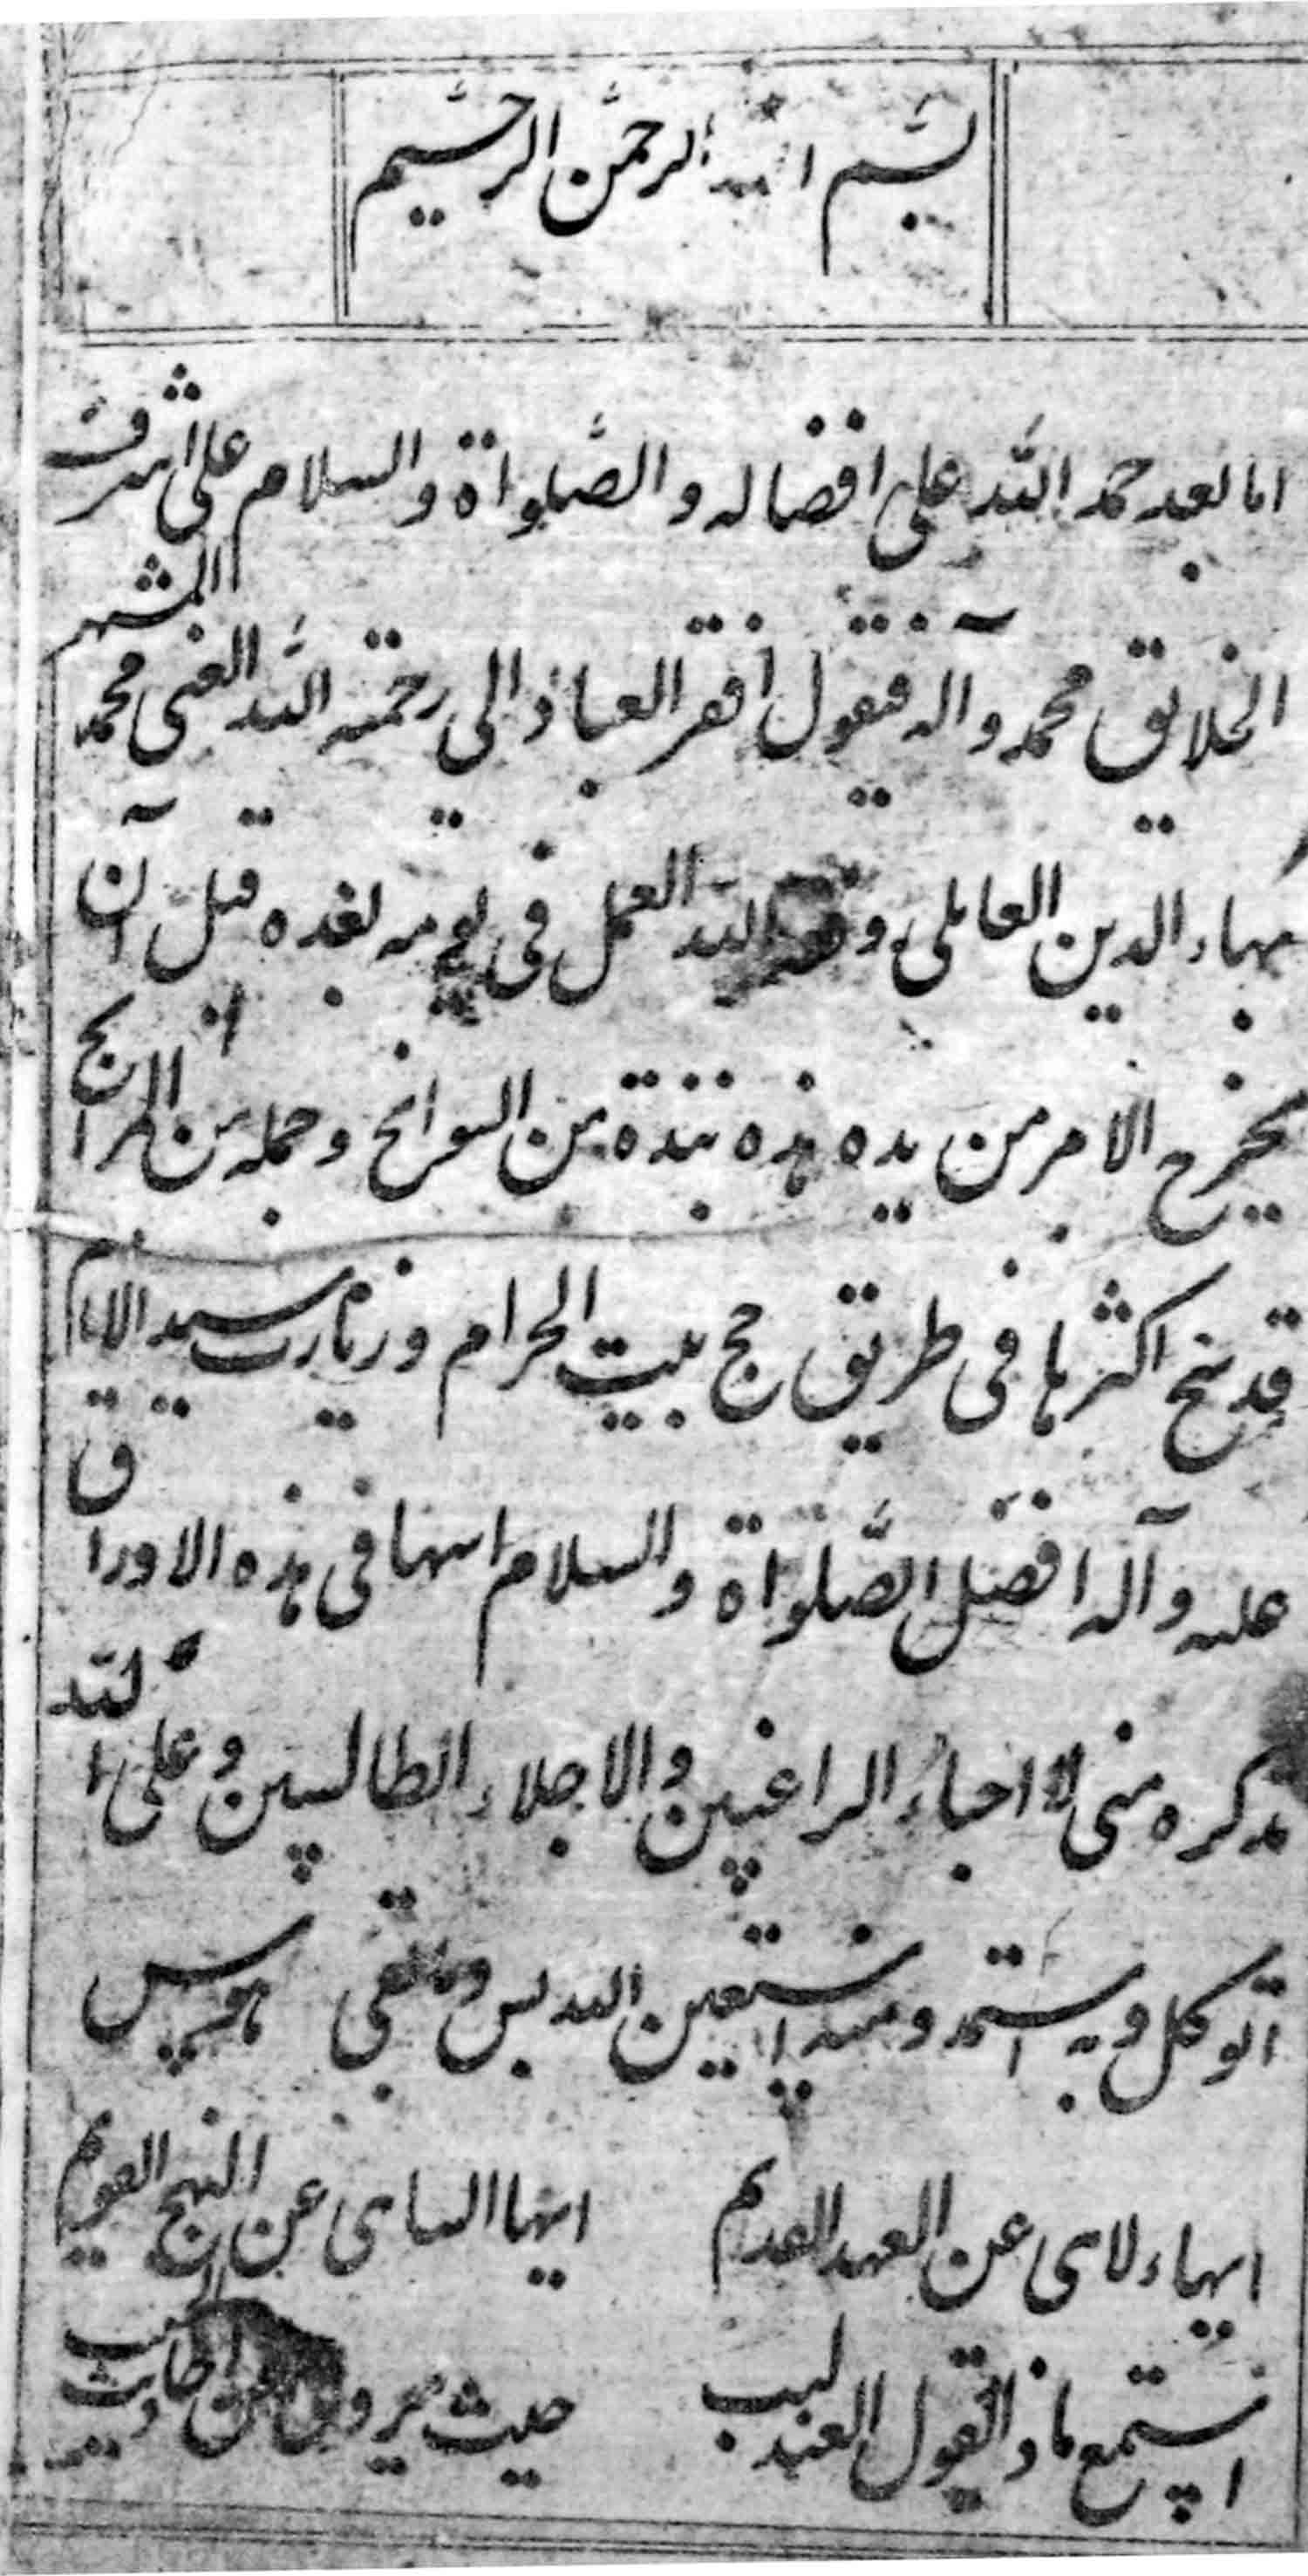 بسم الله الرحمن الرحيم
اما بعد حمد الله على افضاله و الصلواة و السلام على اشرف
الخلايق محمد و آله فيقول افقر العباد الى رحمته الله الغنى محمد المشتهر
بهاء الدين العاملى و الله العمل فى يومه لغده قبل آن
يخرج الامر من يده هذه نبذة من السوانح و جمله من
قد سنح اكثرها فى طريق حج بيت الحرام و زيارت سيد الانام
عليه و آله افضل الصلواة و السلام اسها فى هذه الاوراق
تذكره منى لا احباء الراغبين و الاجلاء الطالبين و على الله
اتوكل و به استمد و منه استعين الله بس و مابقى هوس
ايهاء لاهى عن العهد القديم ايها الساهى عن النهج القويم
استمع ماذا يقول العندليب حيث يروى من احاديث الحبيب